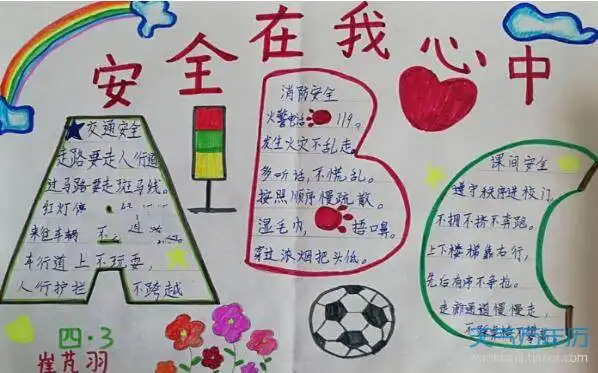 安全在我心中
交通安全
走路要走人行道
过马路要走斑马线。
红灯停
来往车辆 不
车行道上不玩耍，
人行护拦 不跨越
四·3
消防安全
火警电话 119。
发生火灾不乱走。
多听话，不慌乱。
按照顺序慢疏散。
湿毛巾， 捂口鼻。
穿过浓烟把头低。
课间安全
遵守秩序进校门，
不拥不挤不奔跑。
上下楼梯靠右行，
先后有序不争抢。
走廊通道慢慢走，